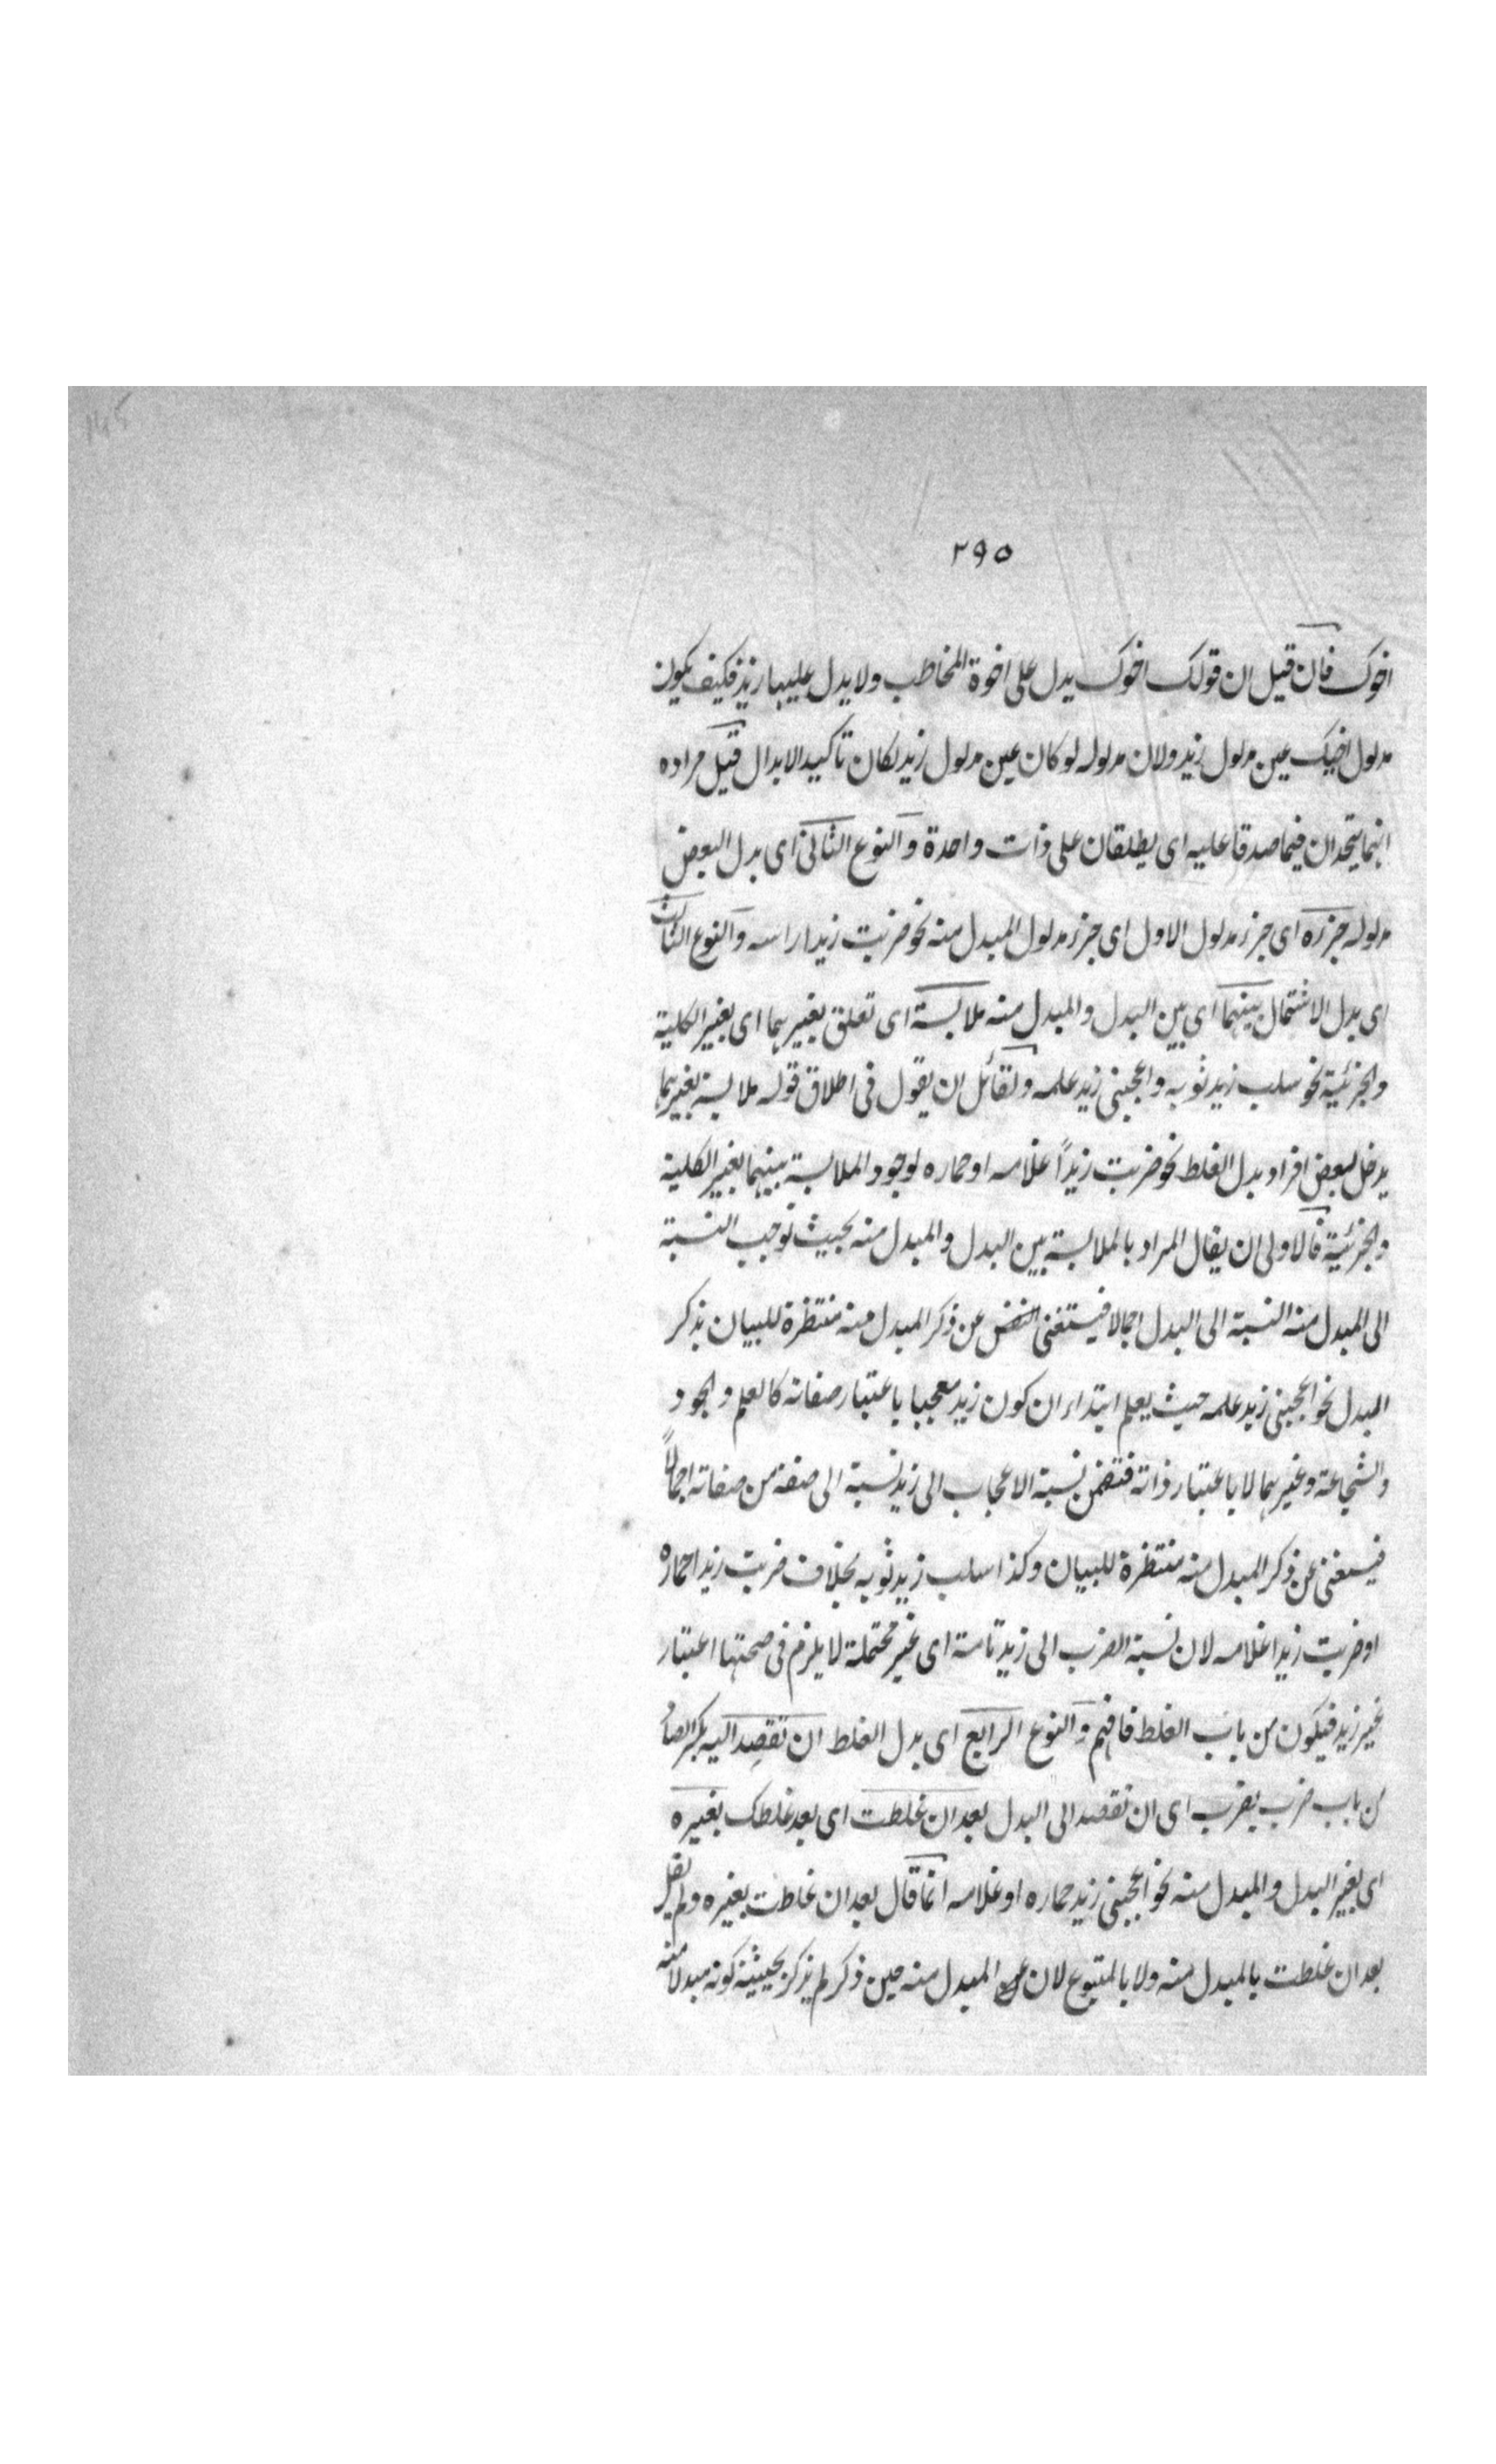 ٢٩٥
اخوك فان قيل ان قولك اخوك يدل على اخوة المخاطب ولا يدل عليها زيد فكيف يكون
مدلول اخيك عين مدلول زيد ولان مدلوله لو كان عين مدلول زيد لكان تاكيدا لا بدال قيل مراده
انهما يتحدان فيما صدقا عليه اى يطلقان على ذات واحدة والنوع الثانى اى بدل البعض
مدلوله جزءه اى جزء مدلول الاول اى جزء مدلول المبدل منه نحو ضربت زيدا راسه والنوع الثالث
اى بدل الاشتمال بينهما اى بين البدل والمبدل منه ملابسة اى تعلق بغيرهما اى بغير الكلية
والجزئية نحو سلب زيد ثوبه واعجبنى زيد علمه ولقائل ان يقول فى اطلاق قوله ملابسة بغيرهما
يدخل بعض افراد بدل الغلط نحو ضربت زيداً غلامه او حماره لوجود الملابسة بينهما بغير الكلية
والجزئية فالاولى ان يقال المراد بالملابسة بين البدل والمبدل منه بحيث توجب النسبة
الى المبدل منه النسبة الى البدل اجمالا فيستغنى النفس عن ذكر المبدل منه منتظرة للبيان بذكر
البدل نحو اعجبنى زيد علمه حيث يعلم ابتداء ان كون زيد معجبا باعتبار صفاته كالعلم والجود
والشجاعة وغيرهما لا باعتبار ذاته فتضمن نسبة الاعجاب الى زيد نسبة الى صفة من صفاته اجمالاً
فيستغنى عن ذكر المبدل منه منتظرة للبيان وكذا سلب زيد ثوبه بخلاف ضربت زيدا حماره
او ضربت زيدا غلامه لان نسبة الضرب الى زيد تامة اى غير محتملة لا يلزم فى صحتها اعتبار
غير زيد فيكون من باب الغلط فافهم والنوع الرابع اى بدل الغلط ان تقصد اليه بكسر الصاد
من باب ضرب يضرب اى ان تقصد الى البدل بعد ان غلطت اى بعد غلطك بغيره
اى بغير البدل والمبدل منه نحو اعجبنى زيد حماره او غلامه انما قال بعد ان غلطت بغيره ولم يقل
بعد ان غلطت بالمبدل منه ولا بالمتبوع لان المبدل منه حين ذكر لم يذكر بحيثية كونه مبدلا منه